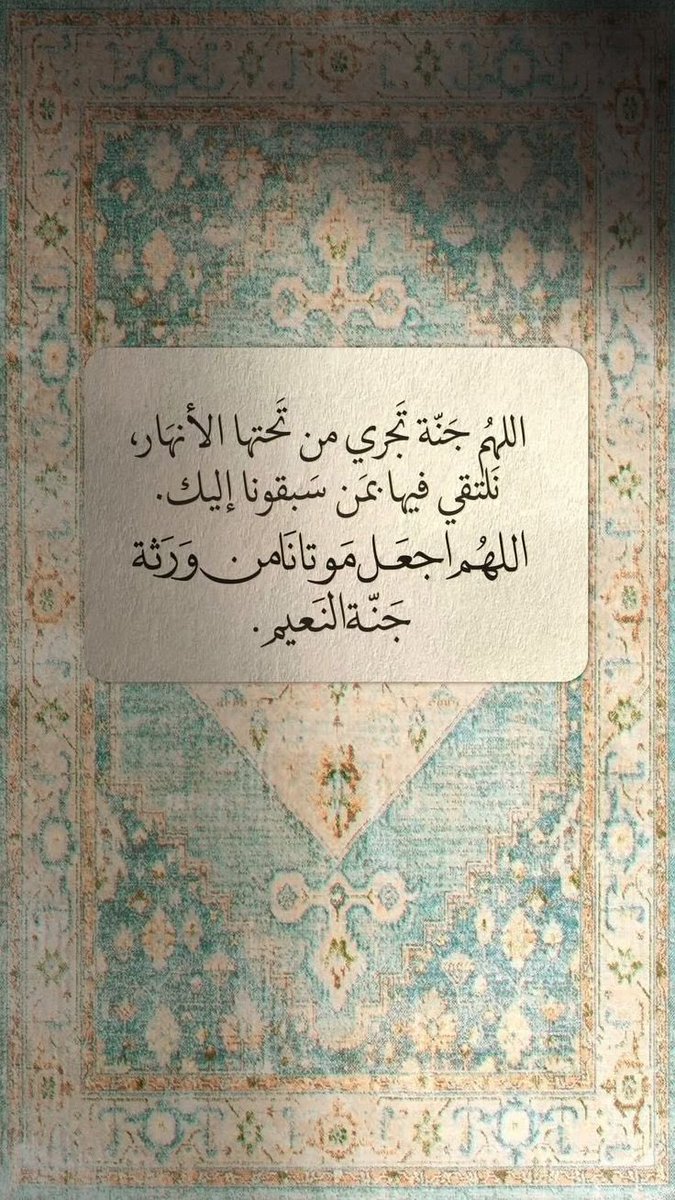 اللهُم جَنّة تَجري من تَحتها الأنهَار،
نَلتقي فيها بمَن سَبقونا إليك.
اللهُم اجعَل مَوتانَا من وَرَثة
جَنّة النَعيم.